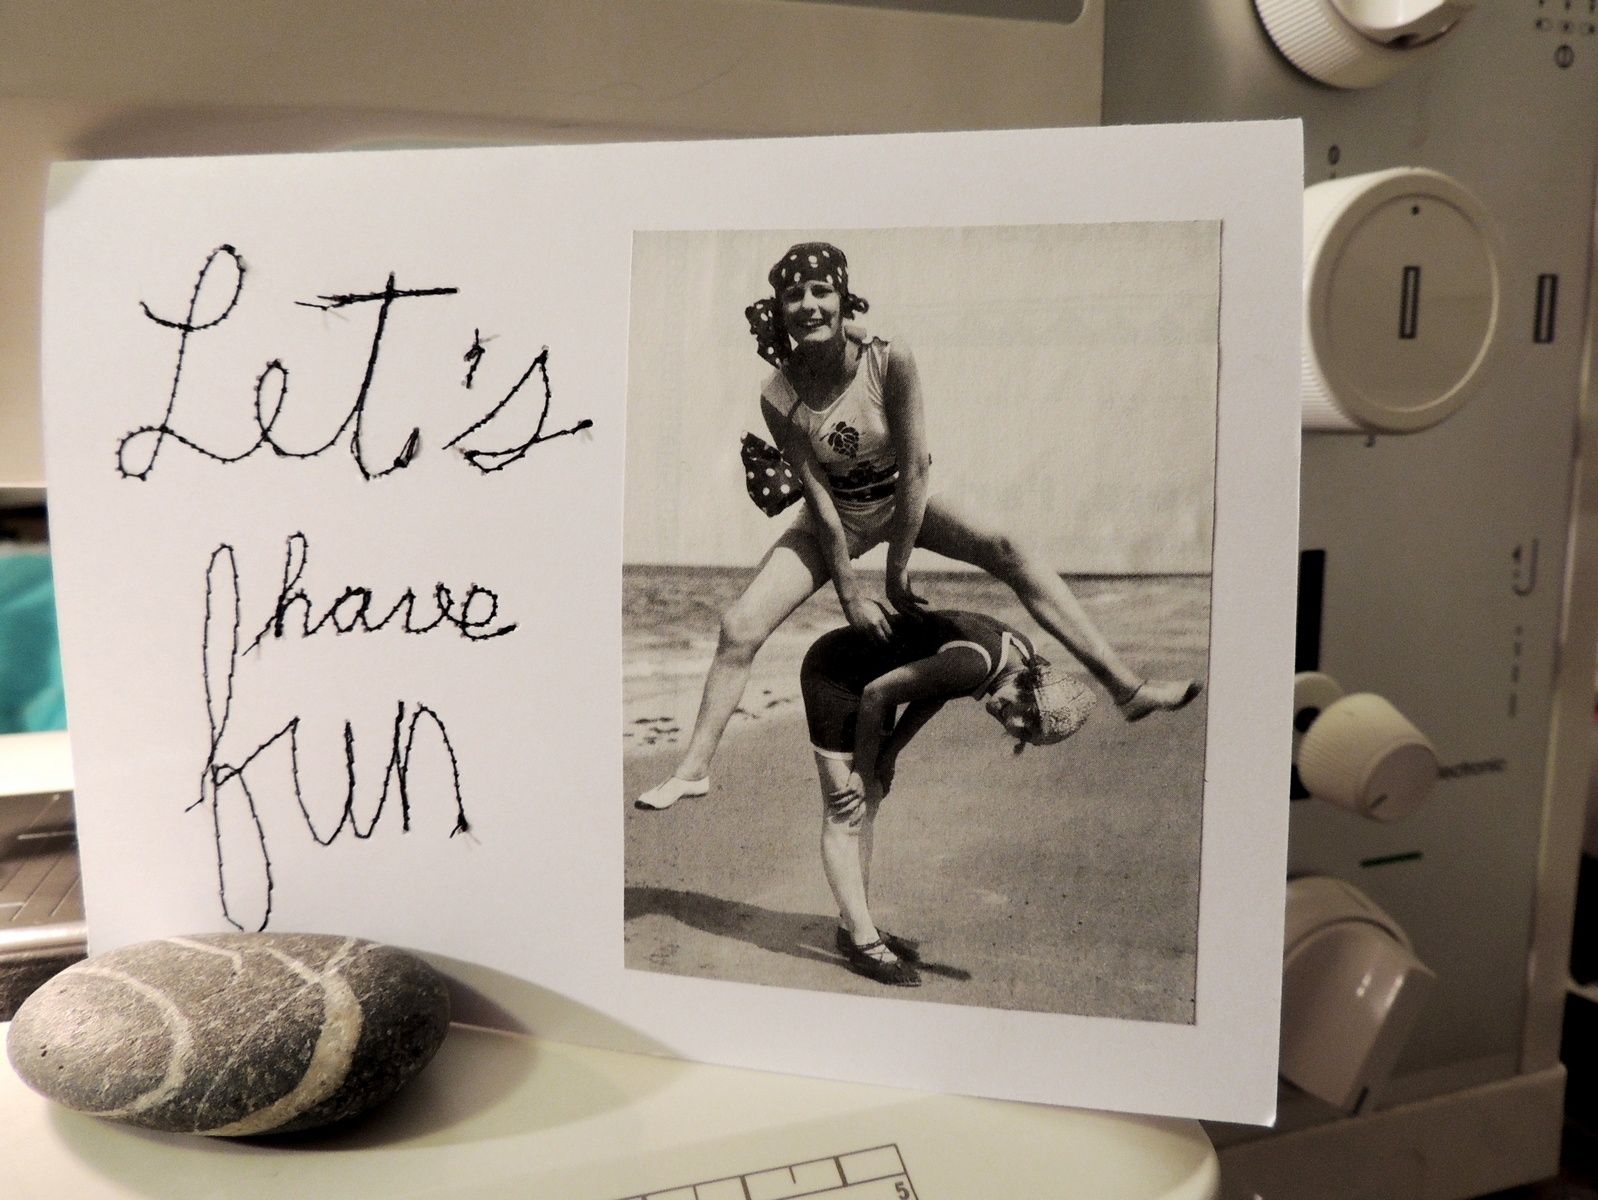 Let's
have
fun
electronic
5